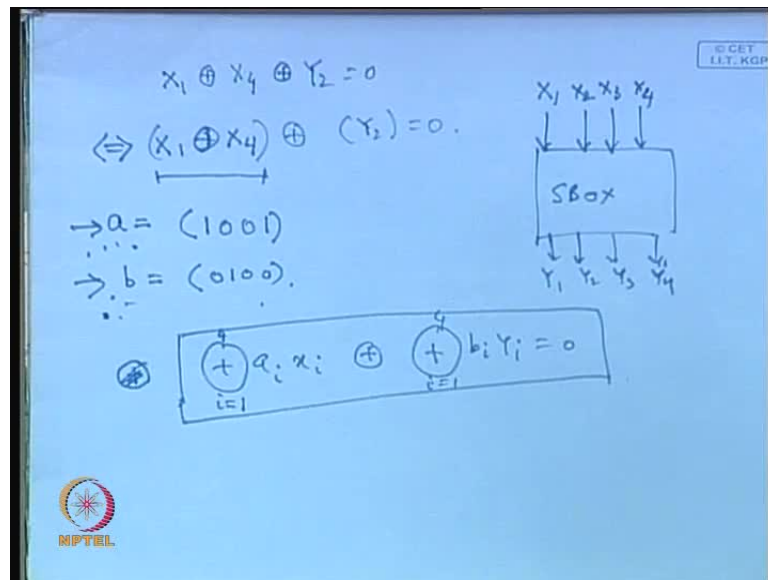 © CET
I.I.T. KGP
X₁ ⊕ X₄ ⊕ Y₂ = 0
⇔ (X₁ ⊕ X₄) ⊕ (Y₂) = 0.
→ a = (1001)
→ b = (0100).
4 4
⊕ aᵢ xᵢ ⊕ ⊕ bᵢ Yᵢ = 0
i=1 i=1
X₁ X₂ X₃ X₄
SBOX
Y₁ Y₂ Y₃ Y₄
NPTEL